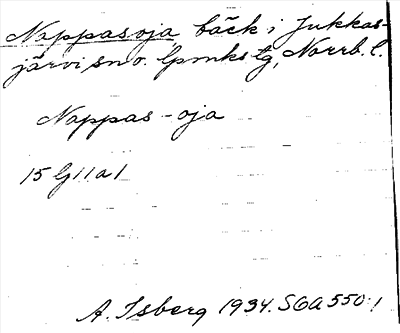 Nappasoja bäck i Jukkas-
järvi sn o. lpmks tg, Norrb. l.
Nappas-oja
15 G 11 a 1
A. Isberg 1934. SGA 550:1